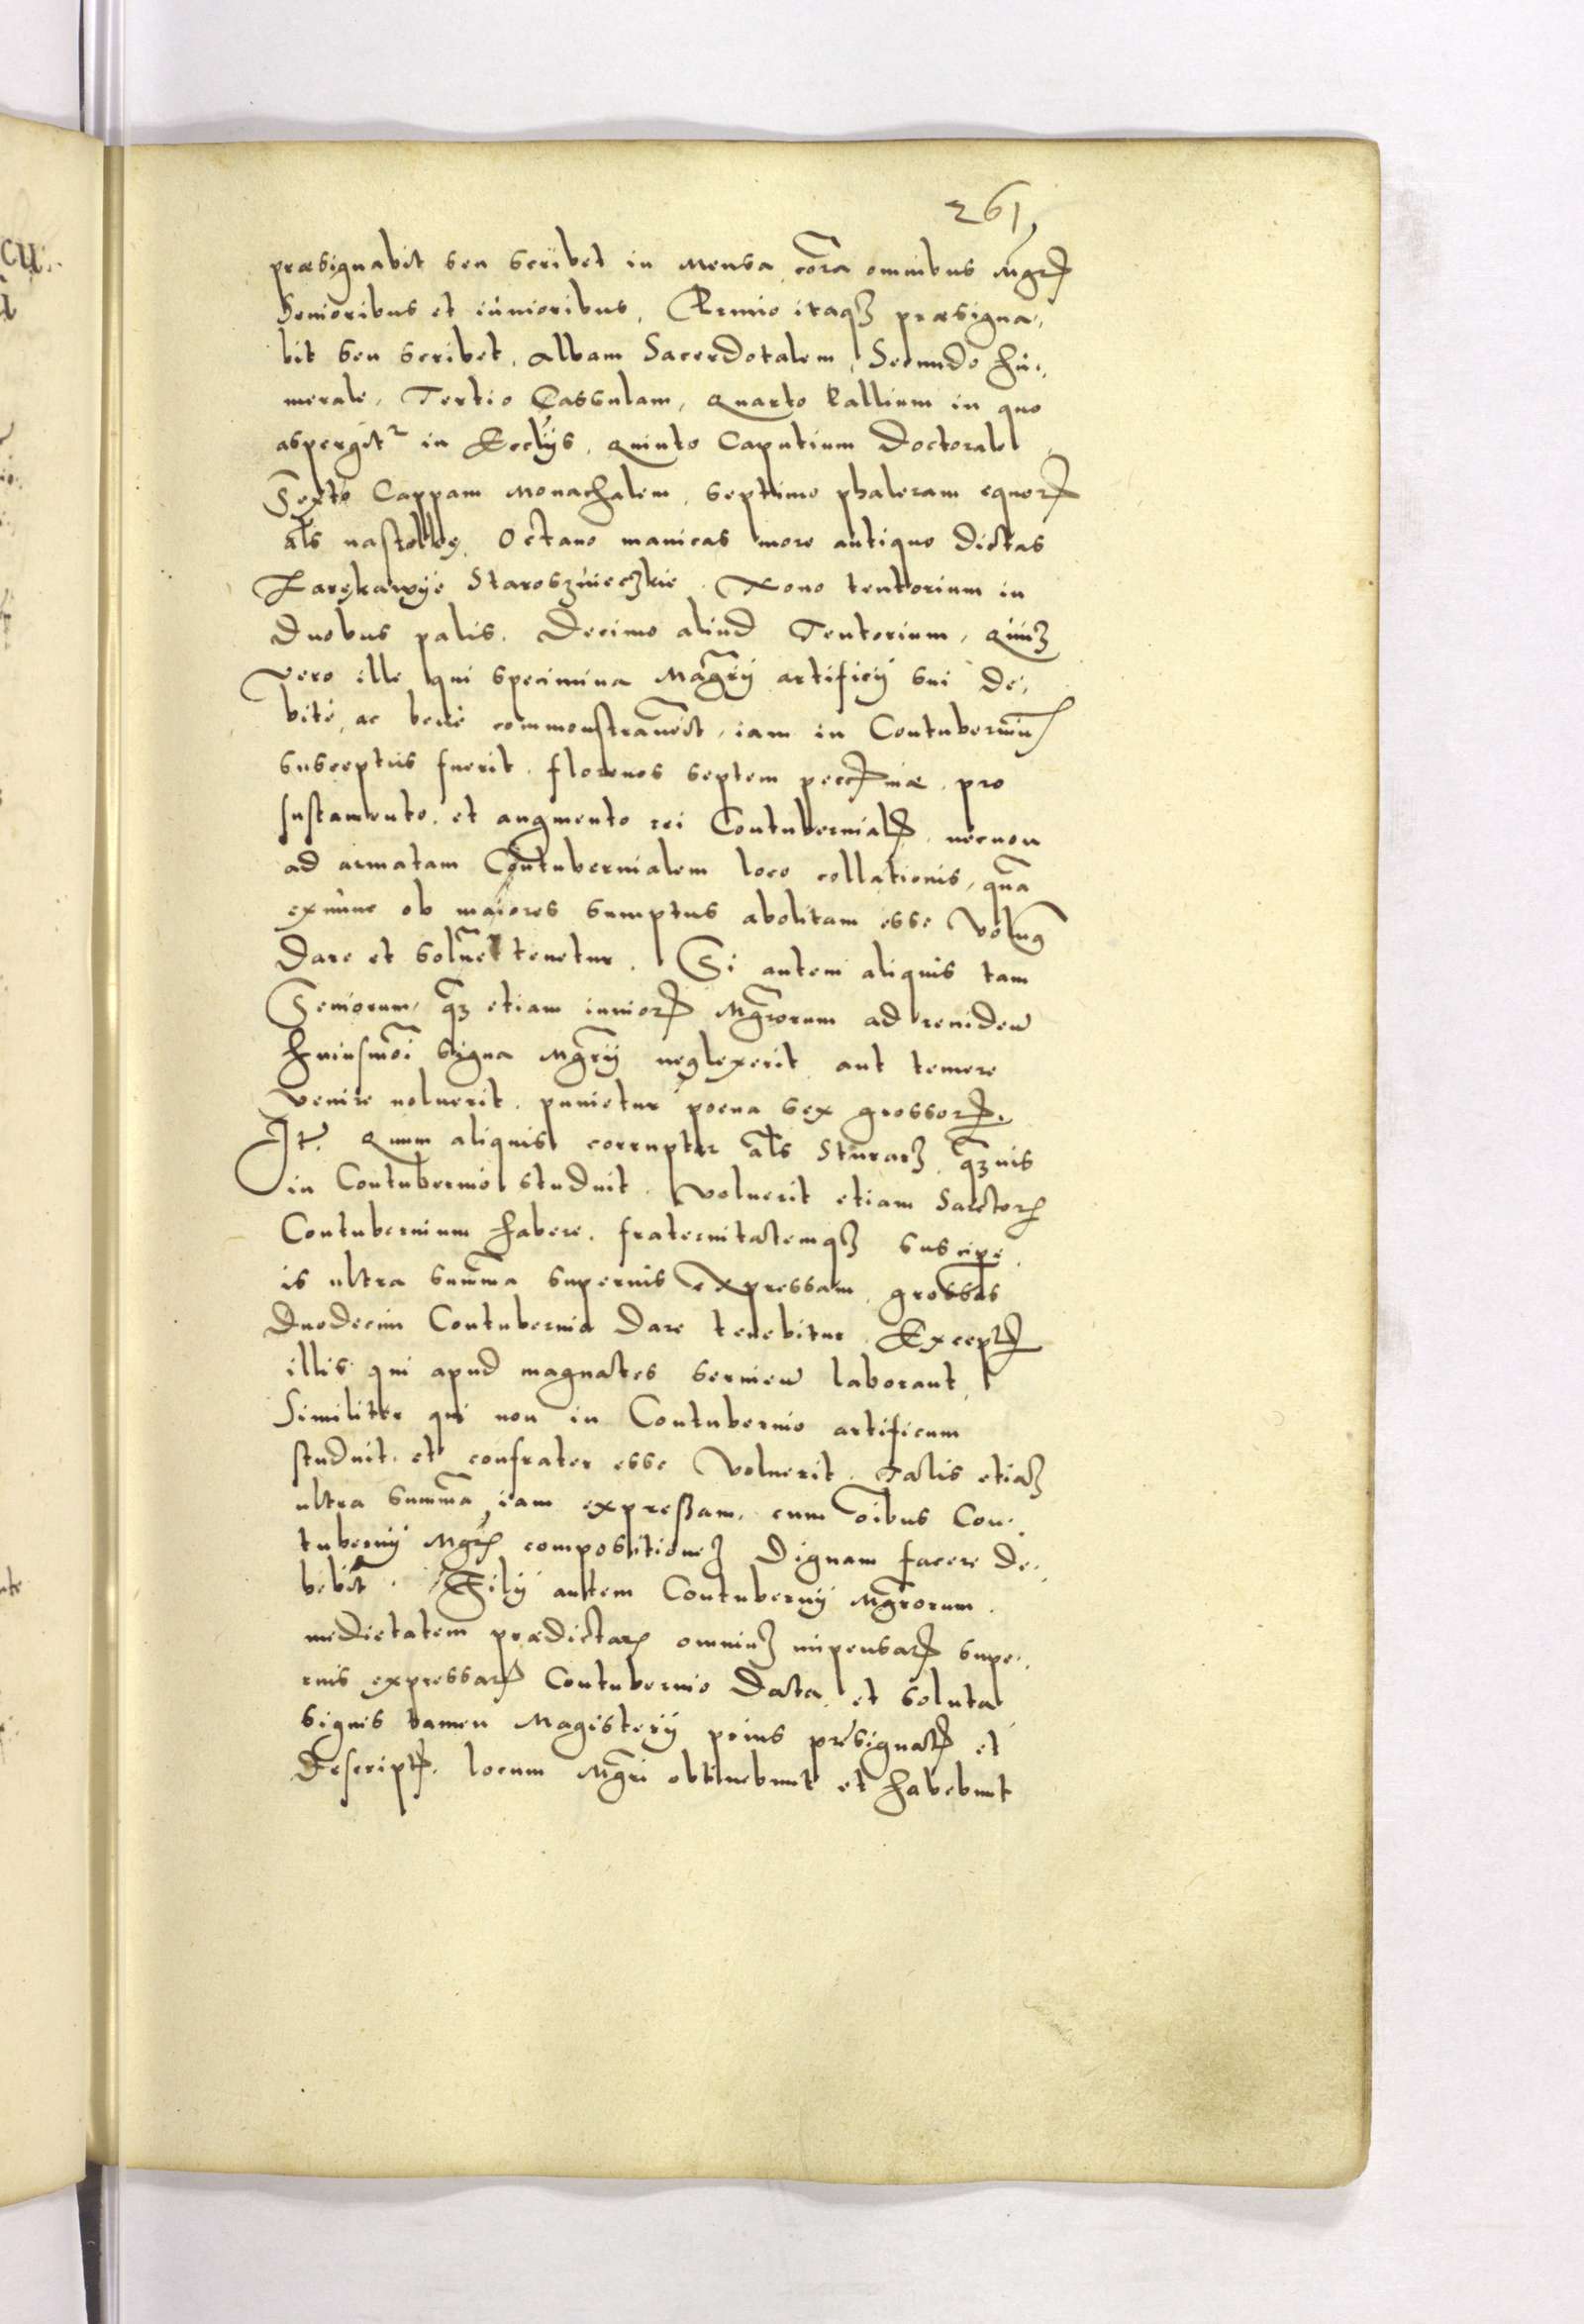 261
præsignabit seu scribet in mensa cora omnibus Mgris
Senioribus et iunioribus, Primo itaqz præsigna,,
bit seu scribet, Albam Sacerdotalem, Secundo hu,,
merale, Tertio Cassulam, Quarto Pallium in quo
aspergitr in Ecclijs, Quinto Caputium Doctorale
Sexto Cappam Monachalem, Septimo phaleram equor
als nastolkę, Octauo manicas more antiquo dictas
Zarękawye Staroszwieczkie. Nono tentorium in
duobus palis. Decimo aliud Tentorium,
vero ille qui specimina Magrij artificij sui de,,
bite, ac bene commonstrauerit, iam in Contubernium
susceptus fuerit, florenos septem pecuniæ, pro
sustamento, et augmento rei Contubernialis, necnon
ad armatam Contubernialem loco collationis, qua
exnunc ob maiores sumptus abolitam esse Volumus
dare et soluere tenetur. Si autem aliquis tam
Seniorum, qz etiam iunior Mgrorum ad videndum
huiusmoi signa Mgrij neglexerit aut temere
venire noluerit, punietur poena sex grossor.
It. Quum aliquis corruptor als Sturarz, qzuis
in Contubernio studuit, voluerit etiam Sarctor
Contubernium habere, fraternitatemqz suscipe
is ultra summa superius expressam, grossos
duodecim Contubernio dare tenebitur, Exceptis
illis qui apud magnates seruien laborant,
Similiter qui non in Contubernio artificum
studuit, et confrater esse Voluerit, Talis etiam
ultra summa, iam expressam, cum oibus Con,,
tubernij Mgris compositionez Dignam facere de,,
bebit. Filij autem Contubernij Mgrorum,
medietatem prædictar omniuz impensar supe,,
rius expressar Contubernio Data et soluta
signis tamen Magisterij prius presignatis et
Descriptis, locum Mgri obtinebunt et habebunt